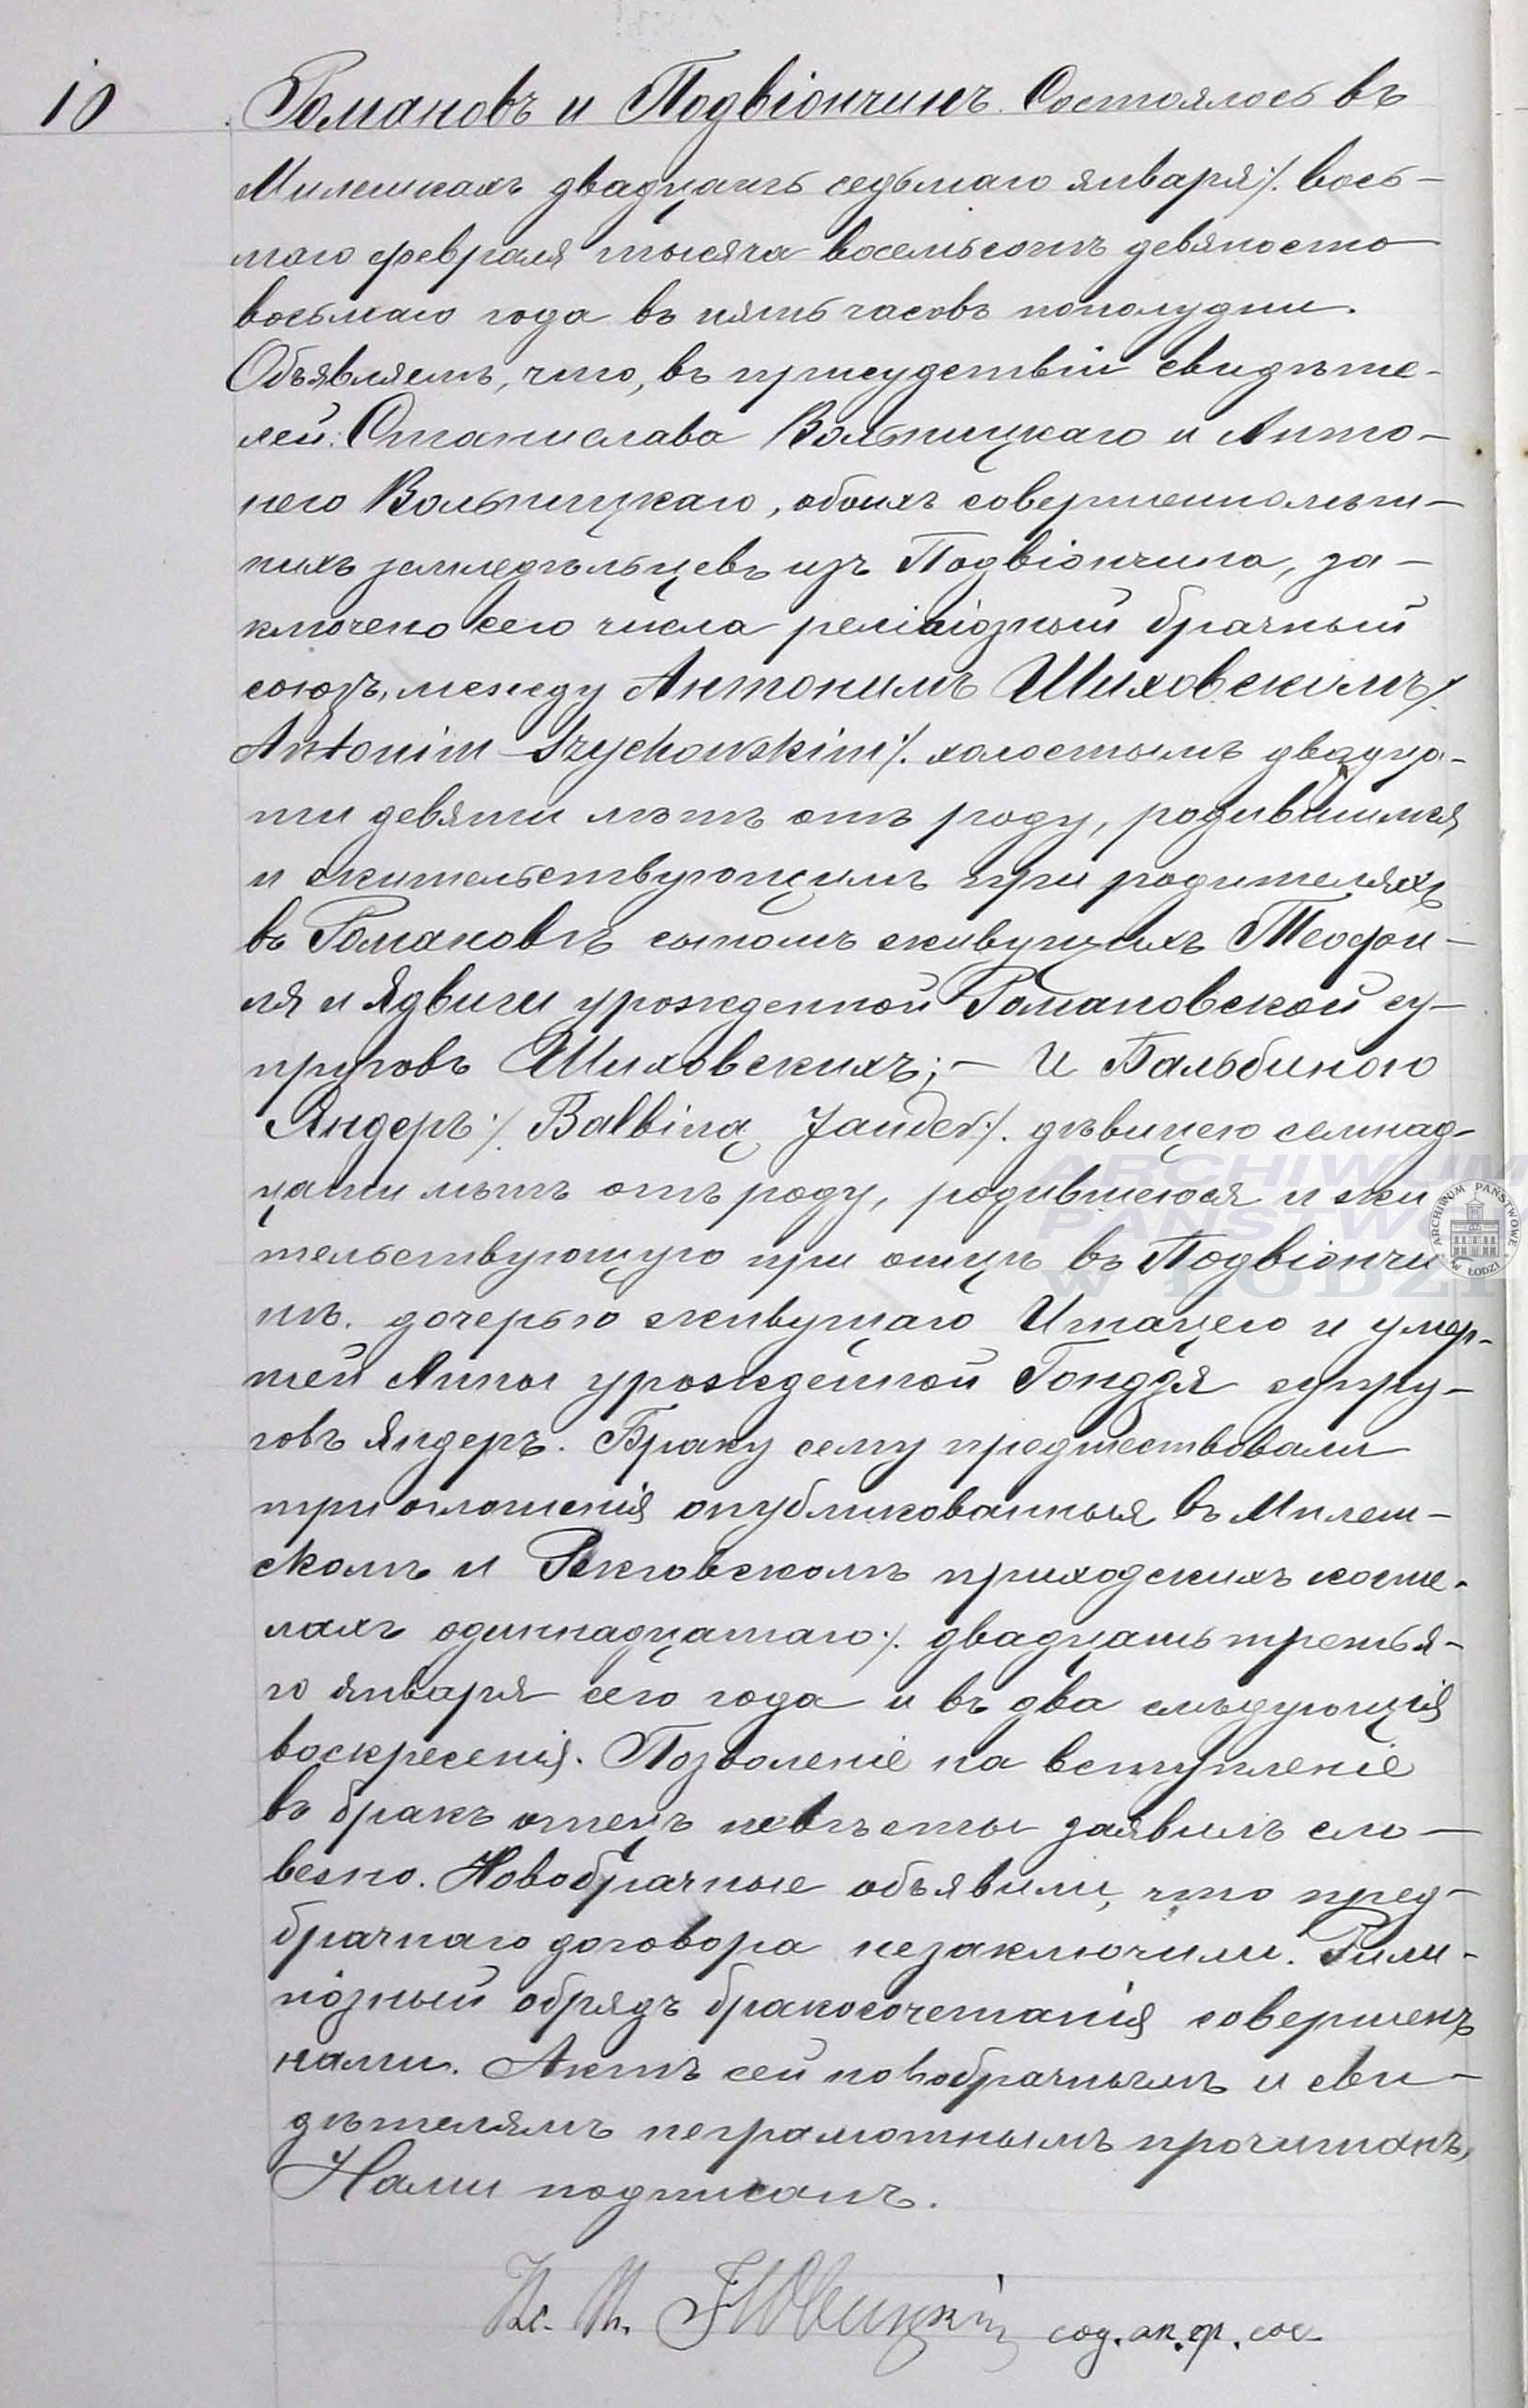 10
Романовъ и Подвіончинъ. Состоялось въ
Милешкахъ двадцать седьмаго января ./. вось-
маго февраля тысяча восемьсотъ девяносто
восьмаго года въ пять часовъ пополудни.
Объявляемъ, что, въ присудствіи свидѣте-
лей: Станислава Вольницкаго и Анто-
него Вольницкаго, обоихъ совершеннолѣт-
нихъ земледѣльцевъ изъ Подвіончина, за-
ключено сего числа религіозный брачный
союзъ, между Антонимъ Шиховскимъ ./.
Antonim Szychowskim ./. холостымъ двадца-
ти девяти лѣтъ отъ роду, родившимся
и жительствующимъ при родителяхъ
въ Романовѣ сыномъ живущихъ Теофи-
ля и Ядвиги урожденной Романовской су-
пруговъ Шиховскихъ; — и Бальбиною
Яндеръ ./. Balbiną Jander ./. дѣвицею семнад-
цати лѣтъ отъ роду, родившеюся и жи
тельствующую при отцѣ въ Подвіончи
нѣ. дочерью живущаго Игнацего и умер-
шей Анны урожденной Гондзя супру-
говъ Яндеръ. Браку сему предшествовали
три оглошенія опубликованныя въ Милеш-
скомъ и приходскихъ косте-
лахъ одиннадцатаго ./. двадцать третья-
го января сего года и въ два слѣдующія
воскресенія. Позволеніе на вступленіе
въ бракъ отецъ невѣсты заявилъ сло-
весно. Новобрачные объявили, что пред-
брачнаго договора незаключили. Рили-
гіозный обрядъ бракосочетанія совершенъ
нами. Актъ сей новобрачнымъ и сви-
дѣтелямъ неграмотнымъ прочитанъ,
Нами подписанъ.
сод. ак. гр. сос.
ARCHIWUM
PAŃSTWOWE
W ŁODZI
ARCHIWUM PAŃSTWOWE W ŁODZI